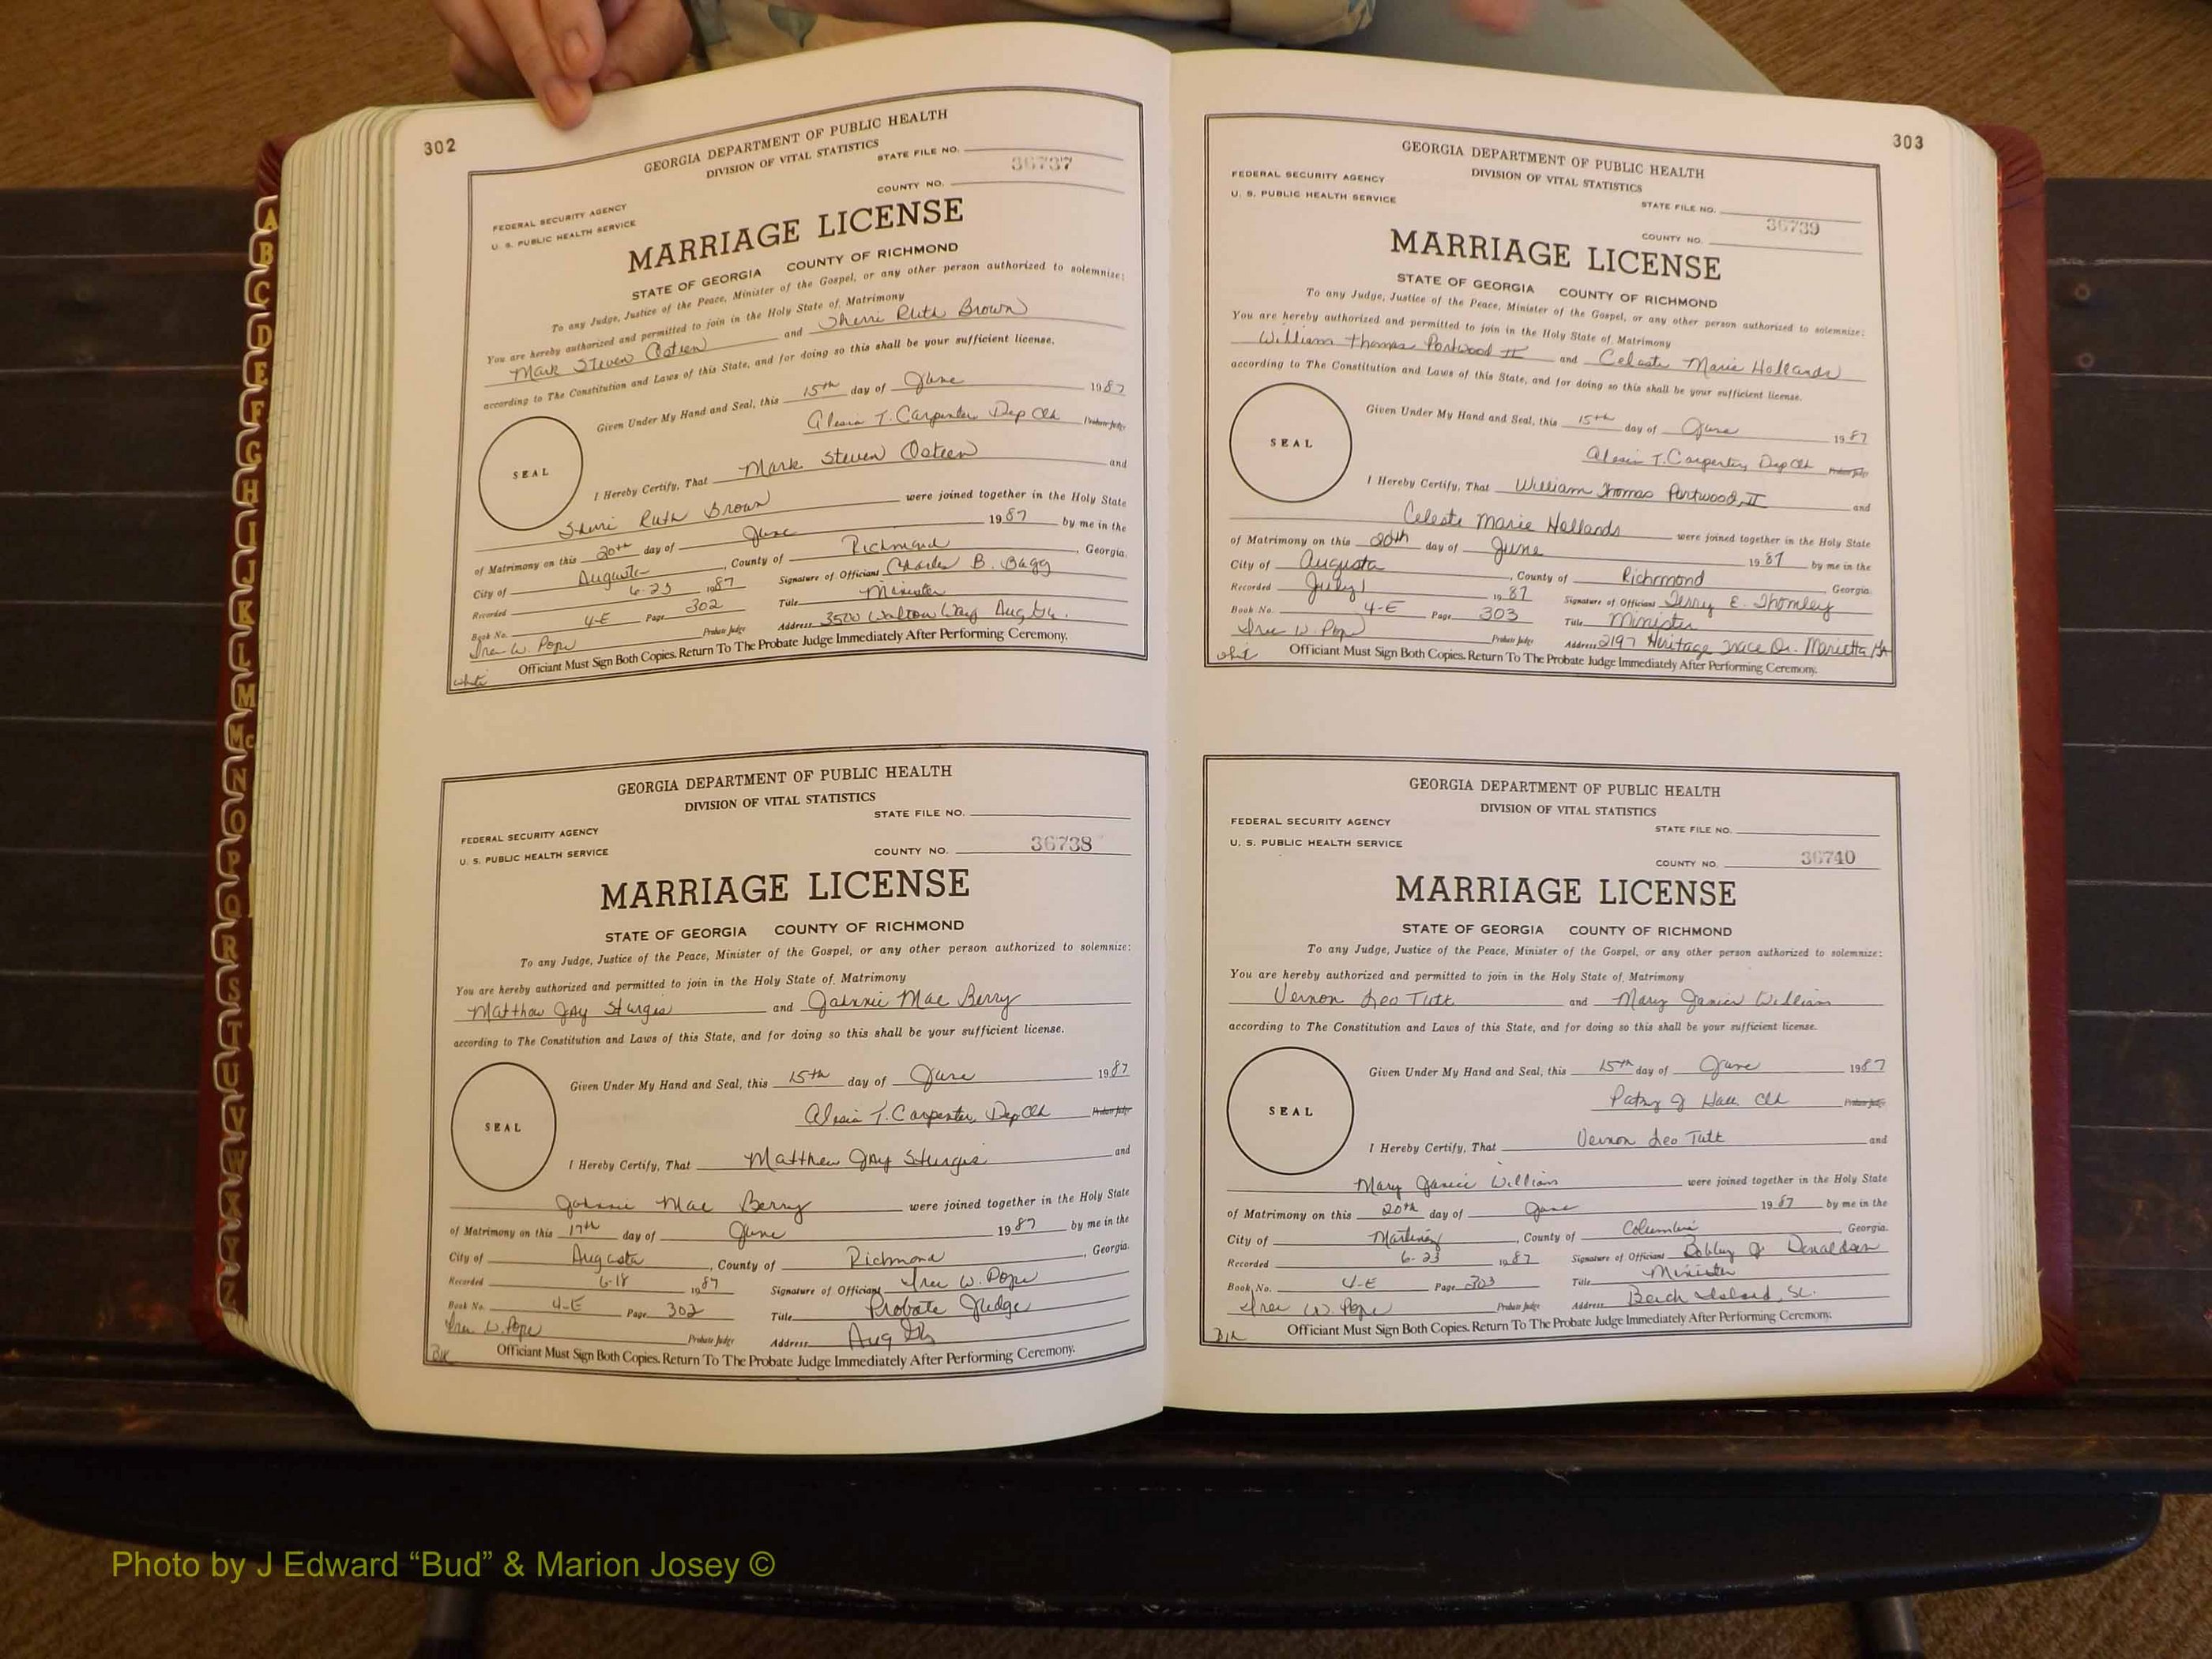 302
GEORGIA DEPARTMENT OF PUBLIC HEALTH
DIVISION OF VITAL STATISTICS
STATE FILE NO. 36737
FEDERAL SECURITY AGENCY
COUNTY NO.
U. S. PUBLIC HEALTH SERVICE
MARRIAGE LICENSE
STATE OF GEORGIA COUNTY OF RICHMOND
To any Judge, Justice of the Peace, Minister of the Gospel, or any other person authorized to solemnize:
You are hereby authorized and permitted to join in the Holy State of Matrimony
Mark Steven Osteen and Sherri Ruth Brown
according to The Constitution and Laws of this State, and for doing so this shall be your sufficient license.
Given Under My Hand and Seal, this 15th day of June 1987
Alesia T. Carpenter, Dep Clk Probate Judge
SEAL
I Hereby Certify, That Mark Steven Osteen and
Sherri Ruth Brown were joined together in the Holy State
of Matrimony on this 20th day of June 1987 by me in the
City of Augusta, County of Richmond, Georgia.
Recorded 6-23 1987 Signature of Officiant Charles B. Bagg
Book No. 4-E Page 302 Title Minister
Irec W. Pope Probate Judge Address 3500 Walton Way Aug, Ga.
Officiant Must Sign Both Copies. Return To The Probate Judge Immediately After Performing Ceremony.
white
GEORGIA DEPARTMENT OF PUBLIC HEALTH
DIVISION OF VITAL STATISTICS
STATE FILE NO.
FEDERAL SECURITY AGENCY
U. S. PUBLIC HEALTH SERVICE
COUNTY NO. 36738
MARRIAGE LICENSE
STATE OF GEORGIA COUNTY OF RICHMOND
To any Judge, Justice of the Peace, Minister of the Gospel, or any other person authorized to solemnize:
You are hereby authorized and permitted to join in the Holy State of Matrimony
Matthew Jay Sturgis and Johnnie Mae Berry
according to The Constitution and Laws of this State, and for doing so this shall be your sufficient license.
Given Under My Hand and Seal, this 15th day of June 1987
Alesia T. Carpenter, Dep Clk Probate Judge
SEAL
I Hereby Certify, That Matthew Jay Sturgis and
Johnnie Mae Berry were joined together in the Holy State
of Matrimony on this 17th day of June 1987 by me in the
City of Augusta, County of Richmond, Georgia.
Recorded 6-18 1987 Signature of Officiant Irec W. Pope
Book No. 4-E Page 302 Title Probate Judge
Irec W. Pope Probate Judge Address Aug Ga
Blk
Officiant Must Sign Both Copies. Return To The Probate Judge Immediately After Performing Ceremony.
303
GEORGIA DEPARTMENT OF PUBLIC HEALTH
DIVISION OF VITAL STATISTICS
FEDERAL SECURITY AGENCY
U. S. PUBLIC HEALTH SERVICE
STATE FILE NO.
36739
COUNTY NO.
MARRIAGE LICENSE
STATE OF GEORGIA COUNTY OF RICHMOND
To any Judge, Justice of the Peace, Minister of the Gospel, or any other person authorized to solemnize:
You are hereby authorized and permitted to join in the Holy State of Matrimony
William Thomas Portwood II and Celeste Marie Hollands
according to The Constitution and Laws of this State, and for doing so this shall be your sufficient license.
Given Under My Hand and Seal, this 15th day of June 1987
Alesia T. Carpenter, Dep Clk Probate Judge
SEAL
I Hereby Certify, That William Thomas Portwood, II and
Celeste Marie Hollands were joined together in the Holy State
of Matrimony on this 20th day of June 1987 by me in the
City of Augusta, County of Richmond Georgia.
Recorded July 1 1987 Signature of Officiant Terry E. Thomley
Book No. 4-E Page 303 Title Minister
Irec W. Pope Probate Judge Address 2197 Heritage Trace Dr. Marietta, GA
white
Officiant Must Sign Both Copies. Return To The Probate Judge Immediately After Performing Ceremony.
GEORGIA DEPARTMENT OF PUBLIC HEALTH
DIVISION OF VITAL STATISTICS
FEDERAL SECURITY AGENCY
STATE FILE NO.
U. S. PUBLIC HEALTH SERVICE
COUNTY NO. 36740
MARRIAGE LICENSE
STATE OF GEORGIA COUNTY OF RICHMOND
To any Judge, Justice of the Peace, Minister of the Gospel, or any other person authorized to solemnize:
You are hereby authorized and permitted to join in the Holy State of Matrimony
Vernon Leo Tutt and Mary Janice William
according to The Constitution and Laws of this State, and for doing so this shall be your sufficient license.
Given Under My Hand and Seal, this 15th day of June 1987
Patsy J Hall Clk Probate Judge
SEAL
I Hereby Certify, That Vernon Leo Tutt and
Mary Janice William were joined together in the Holy State
of Matrimony on this 20th day of June 1987 by me in the
City of Martinez, County of Columbia, Georgia.
Recorded 6-23 1987 Signature of Officiant Bobby J Donaldson
Book No. 4-E Page 303 Title Minister
Irec W. Pope Probate Judge Address Beech Island, SC.
Blk
Officiant Must Sign Both Copies. Return To The Probate Judge Immediately After Performing Ceremony.
A
B
C
D
E
F
G
H
I
J
K
L
M
Mc
N
O
P
Q
R
S
T
U
V
W
X
Y
Z
Photo by J Edward “Bud” & Marion Josey ©